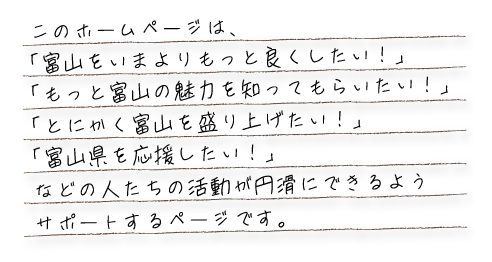 このホームページは、
「富山をいまよりもっと良くしたい！」
「もっと富山の魅力を知ってもらいたい！」
「とにかく富山を盛り上げたい！」
「富山県を応援したい！」
などの人たちの活動が円滑にできるよう
サポートするページです。